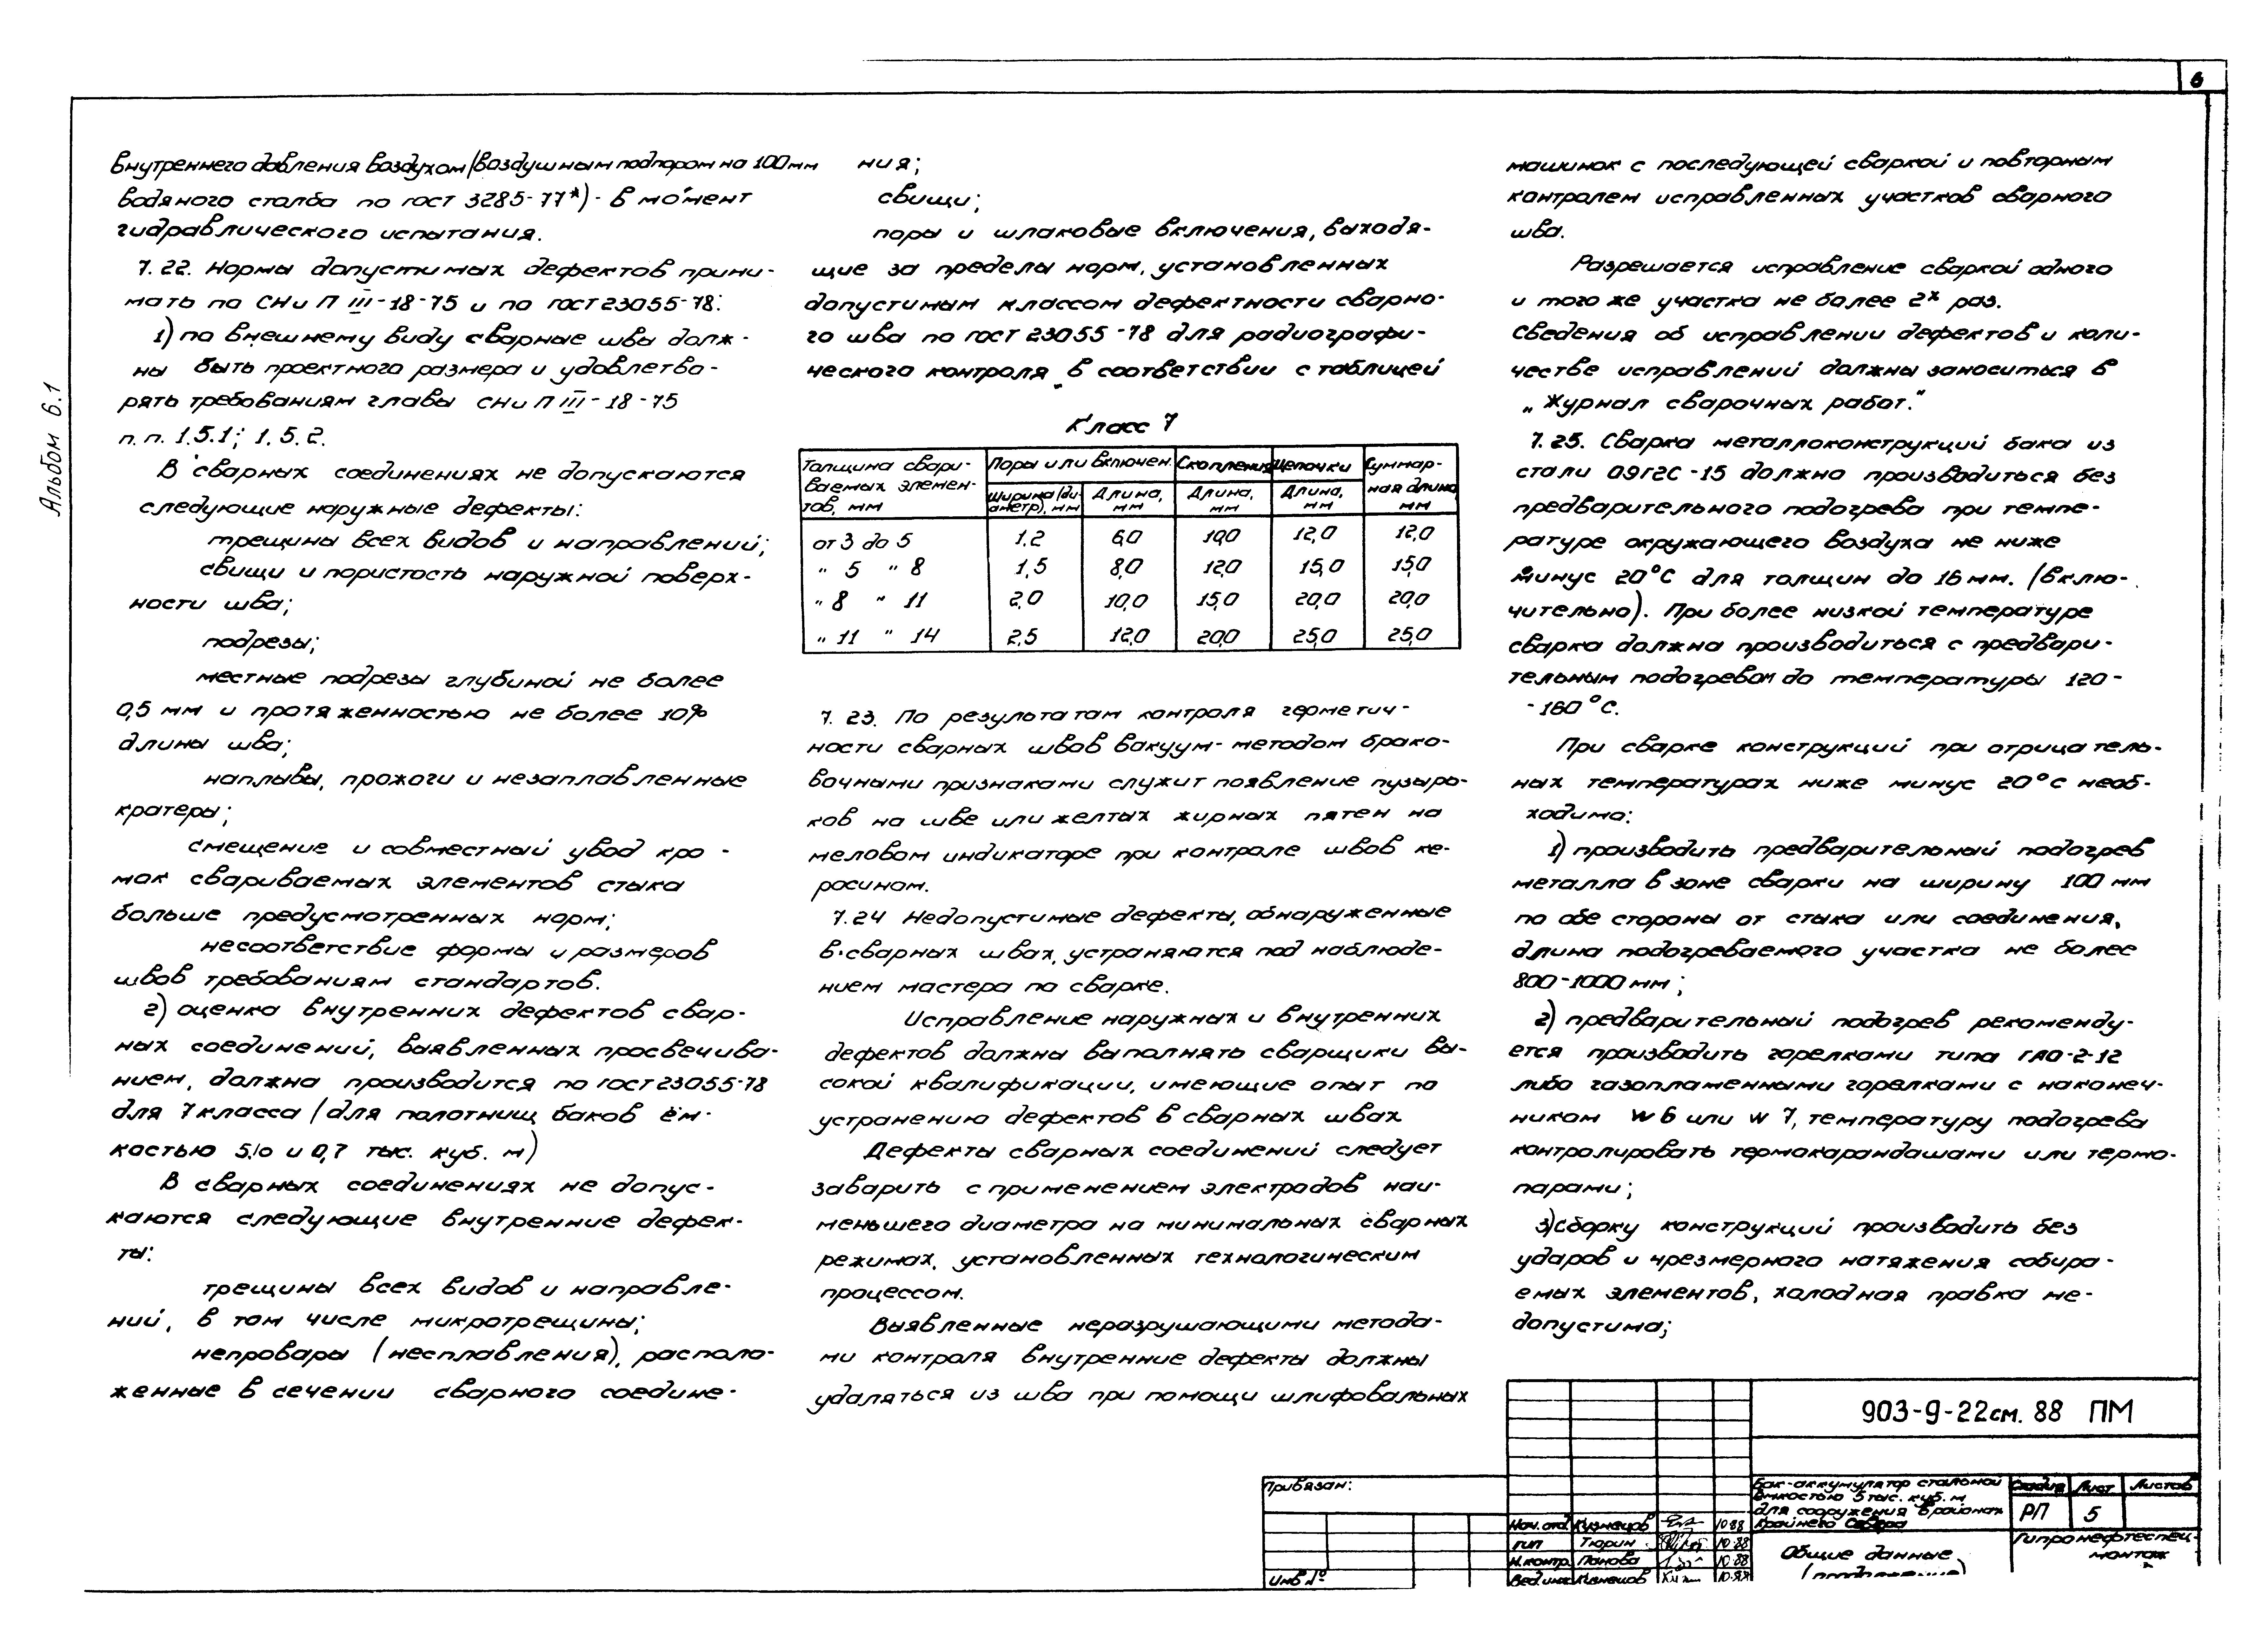 6
Альбом 6.1
внутреннего давления воздухом (воздушным подпором на 100 мм
водяного столба по гост 3285-77*) - в момент
гидравлического испытания.
7.22. Нормы допустимых дефектов прини-
мать по СНиП III-18-75 и по гост 23055-78:
1) по внешнему виду сварные швы долж-
ны быть проектного размера и удовлетво-
рять требованиям главы СНиП III-18-75
п.п. 1.5.1; 1.5.2.
В сварных соединениях не допускаются
следующие наружные дефекты:
трещины всех видов и направлений;
свищи и пористость наружной поверх-
ности шва;
подрезы;
местные подрезы глубиной не более
0,5 мм и протяженностью не более 10%
длины шва;
наплывы, прожоги и незаплавленные
кратеры;
смещение и совместный увод кро-
мок свариваемых элементов стыка
больше предусмотренных норм;
несоответствие формы и размеров
швов требованиям стандартов.
2) оценка внутренних дефектов свар-
ных соединений, выявленных просвечива-
нием, должна производится по гост 23055-78
для 7 класса (для полотнищ баков ём-
костью 5,10 и 0,7 тыс. куб. м)
В сварных соединениях не допус-
каются следующие внутренние дефек-
ты:
трещины всех видов и направле-
ний, в том числе микротрещины;
непровары (несплавления), располо-
женные в сечении сварного соедине-
ния;
свищи;
поры и шлаковые включения, выходя-
щие за пределы норм, установленных
допустимым классом дефектности сварно-
го шва по гост 23055-78 для радиографи-
ческого контроля в соответствии с таблицей
Класс 7
Толщина свари-
ваемых элемен-
тов, мм
Поры или включен. Скопления Цепочки Суммар-
ная длина
мм
Ширина (ди-
аметр), мм
Длина,
мм
Длина,
мм
Длина,
мм
от 3 до 5 1.2 6,0 10,0 12,0 12,0
" 5 " 8 1,5 8,0 12,0 15,0 15,0
" 8 " 11 2,0 10,0 15,0 20,0 20,0
" 11 " 14 2,5 12,0 20,0 25,0 25,0
7.23. По результатам контроля герметич-
ности сварных швов вакуум-методом брако-
вочными признаками служит появление пузырь-
ков на шве или желтых жирных пятен на
меловом индикаторе при контроле швов ке-
росином.
7.24 Недопустимые дефекты, обнаруженные
в сварных швах, устраняются под наблюде-
нием мастера по сварке.
Исправление наружных и внутренних
дефектов должны выполнять сварщики вы-
сокой квалификации, имеющие опыт по
устранению дефектов в сварных швах
Дефекты сварных соединений следует
заварить с применением электродов наи-
меньшего диаметра на минимальных сварных
режимах, установленных технологическим
процессом.
Выявленные неразрушающими метода-
ми контроля внутренние дефекты должны
удаляться из шва при помощи шлифовальных
машинок с последующей сваркой и повторным
контролем исправленных участков сварного
шва.
Разрешается исправление сваркой одного
и того же участка не более 2х раз.
Сведения об исправлении дефектов и коли-
честве исправлений должны заноситься в
„Журнал сварочных работ."
7.25. Сварка металлоконструкций бака из
стали 09Г2С-15 должна производиться без
предварительного подогрева при темпе-
ратуре окружающего воздуха не ниже
минус 20°С для толщин до 16 мм. (вклю-
чительно). При более низкой температуре
сварка должна производиться с предвари-
тельным подогревом до температуры 120-
-160°С.
При сварке конструкций при отрицатель-
ных температурах ниже минус 20°С необ-
ходимо:
1) производить предварительный подогрев
металла в зоне сварки на ширину 100 мм
по обе стороны от стыка или соединения,
длина подогреваемого участка не более
800-1000 мм;
2) предварительный подогрев рекоменду-
ется производить горелками типа ГАО-2-12
либо газопламенными горелками с наконеч-
ником N 6 или N 7, температуру подогрева
контролировать термокарандашами или термо-
парами;
3) сборку конструкций производить без
ударов и чрезмерного натяжения собира-
емых элементов, холодная правка не-
допустима;
903-9-22см. 88 ПМ
Привязан:
Инв №
Нач. отд. Кузнецов 10.88
ГИП Тюрин 10.88
Н.контр. Панова 10.88
Вед.инж Кузнецов 10.88
Бак-аккумулятор стальной
ёмкостью 5 тыс. куб. м
для сооружения в районах
Крайнего Севера
Стадия Лист Листов
РП 5
Общие данные
(продолжение)
Гипронефтеспец-
монтаж